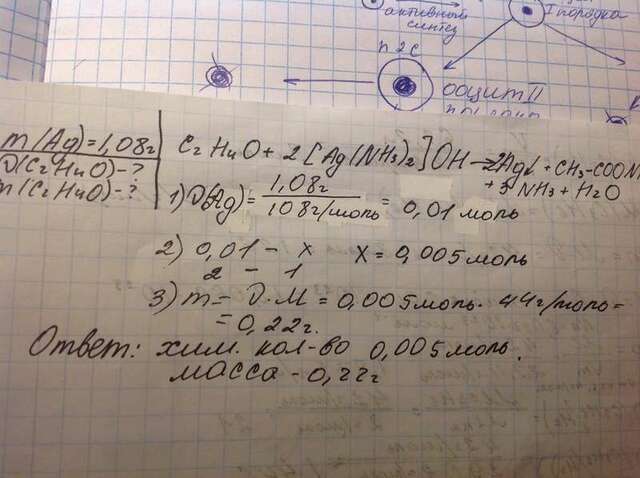 активный
синтез
I порядка
n2c
ооцит II
m(Ag)=1,08г
ν(C₂H₄O)-?
m(C₂H₄O)-?
C₂H₄O + 2[Ag(NH₃)₂]OH → 2Ag↓ + CH₃-COON
+ 3 NH₃ + H₂O
1) ν(Ag) = 1,08г / 108г/моль = 0,01 моль
2) 0,01 - x x = 0,005 моль
2 - 1
3) m = ν·M = 0,005 моль · 44г/моль =
= 0,22г.
Ответ: хим. кол-во 0,005 моль.
масса - 0,22г